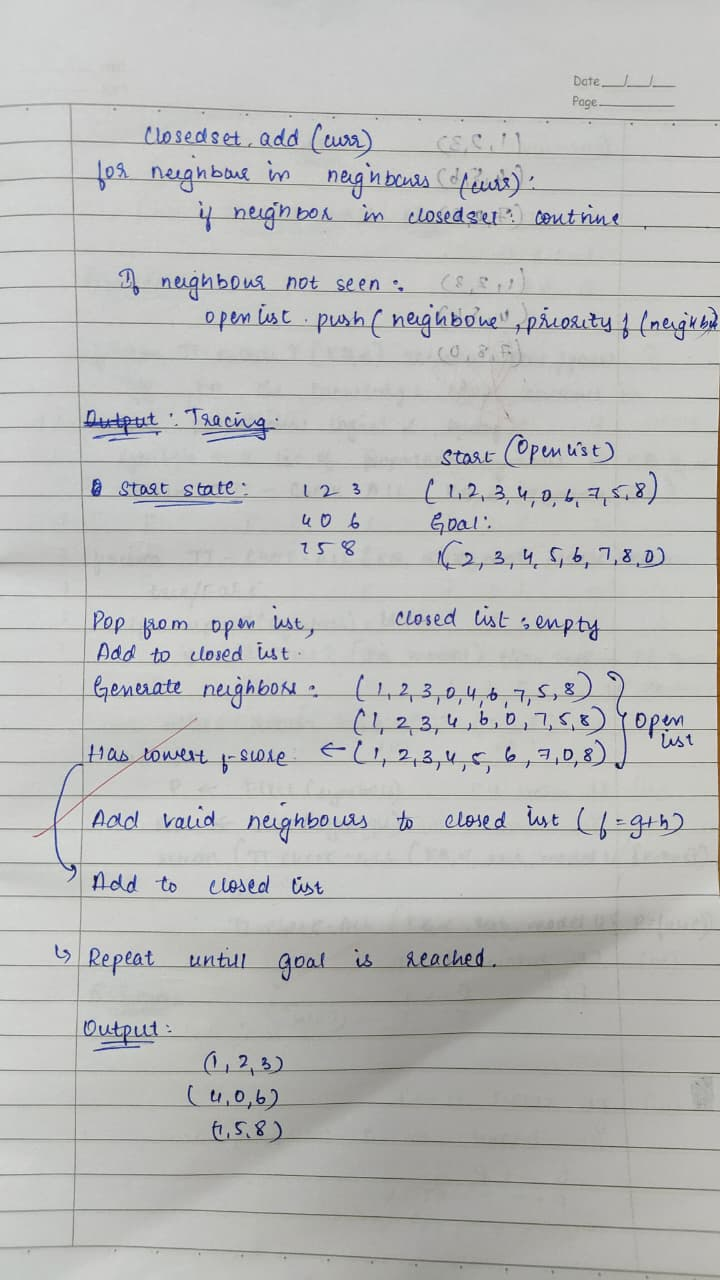 Date __/__/__
Page
Closedset. add (curr)
for neighbour in neighbours (curr):
if neighbor in closedset: continue
If neighbour not seen:
openlist. push (neighbour, priority f (neighb
Output: Tracing:
Start (Open list)
Start state: 1 2 3 (1,2,3,4,0,6,7,5,8)
4 0 6 Goal:
7 5 8 (2,3,4,5,6,7,8,0)
Pop from open list, closed list : empty
Add to closed list.
Generate neighbors: (1,2,3,0,4,6,7,5,8)
(1,2,3,4,6,0,7,5,8) Open
list
Has lowest f-score: ← (1,2,3,4,5,6,7,0,8)
Add valid neighbours to closed list (f=g+h)
Add to closed list
↳ Repeat untill goal is reached.
Output:
(1,2,3)
(4,0,6)
(7,5,8)